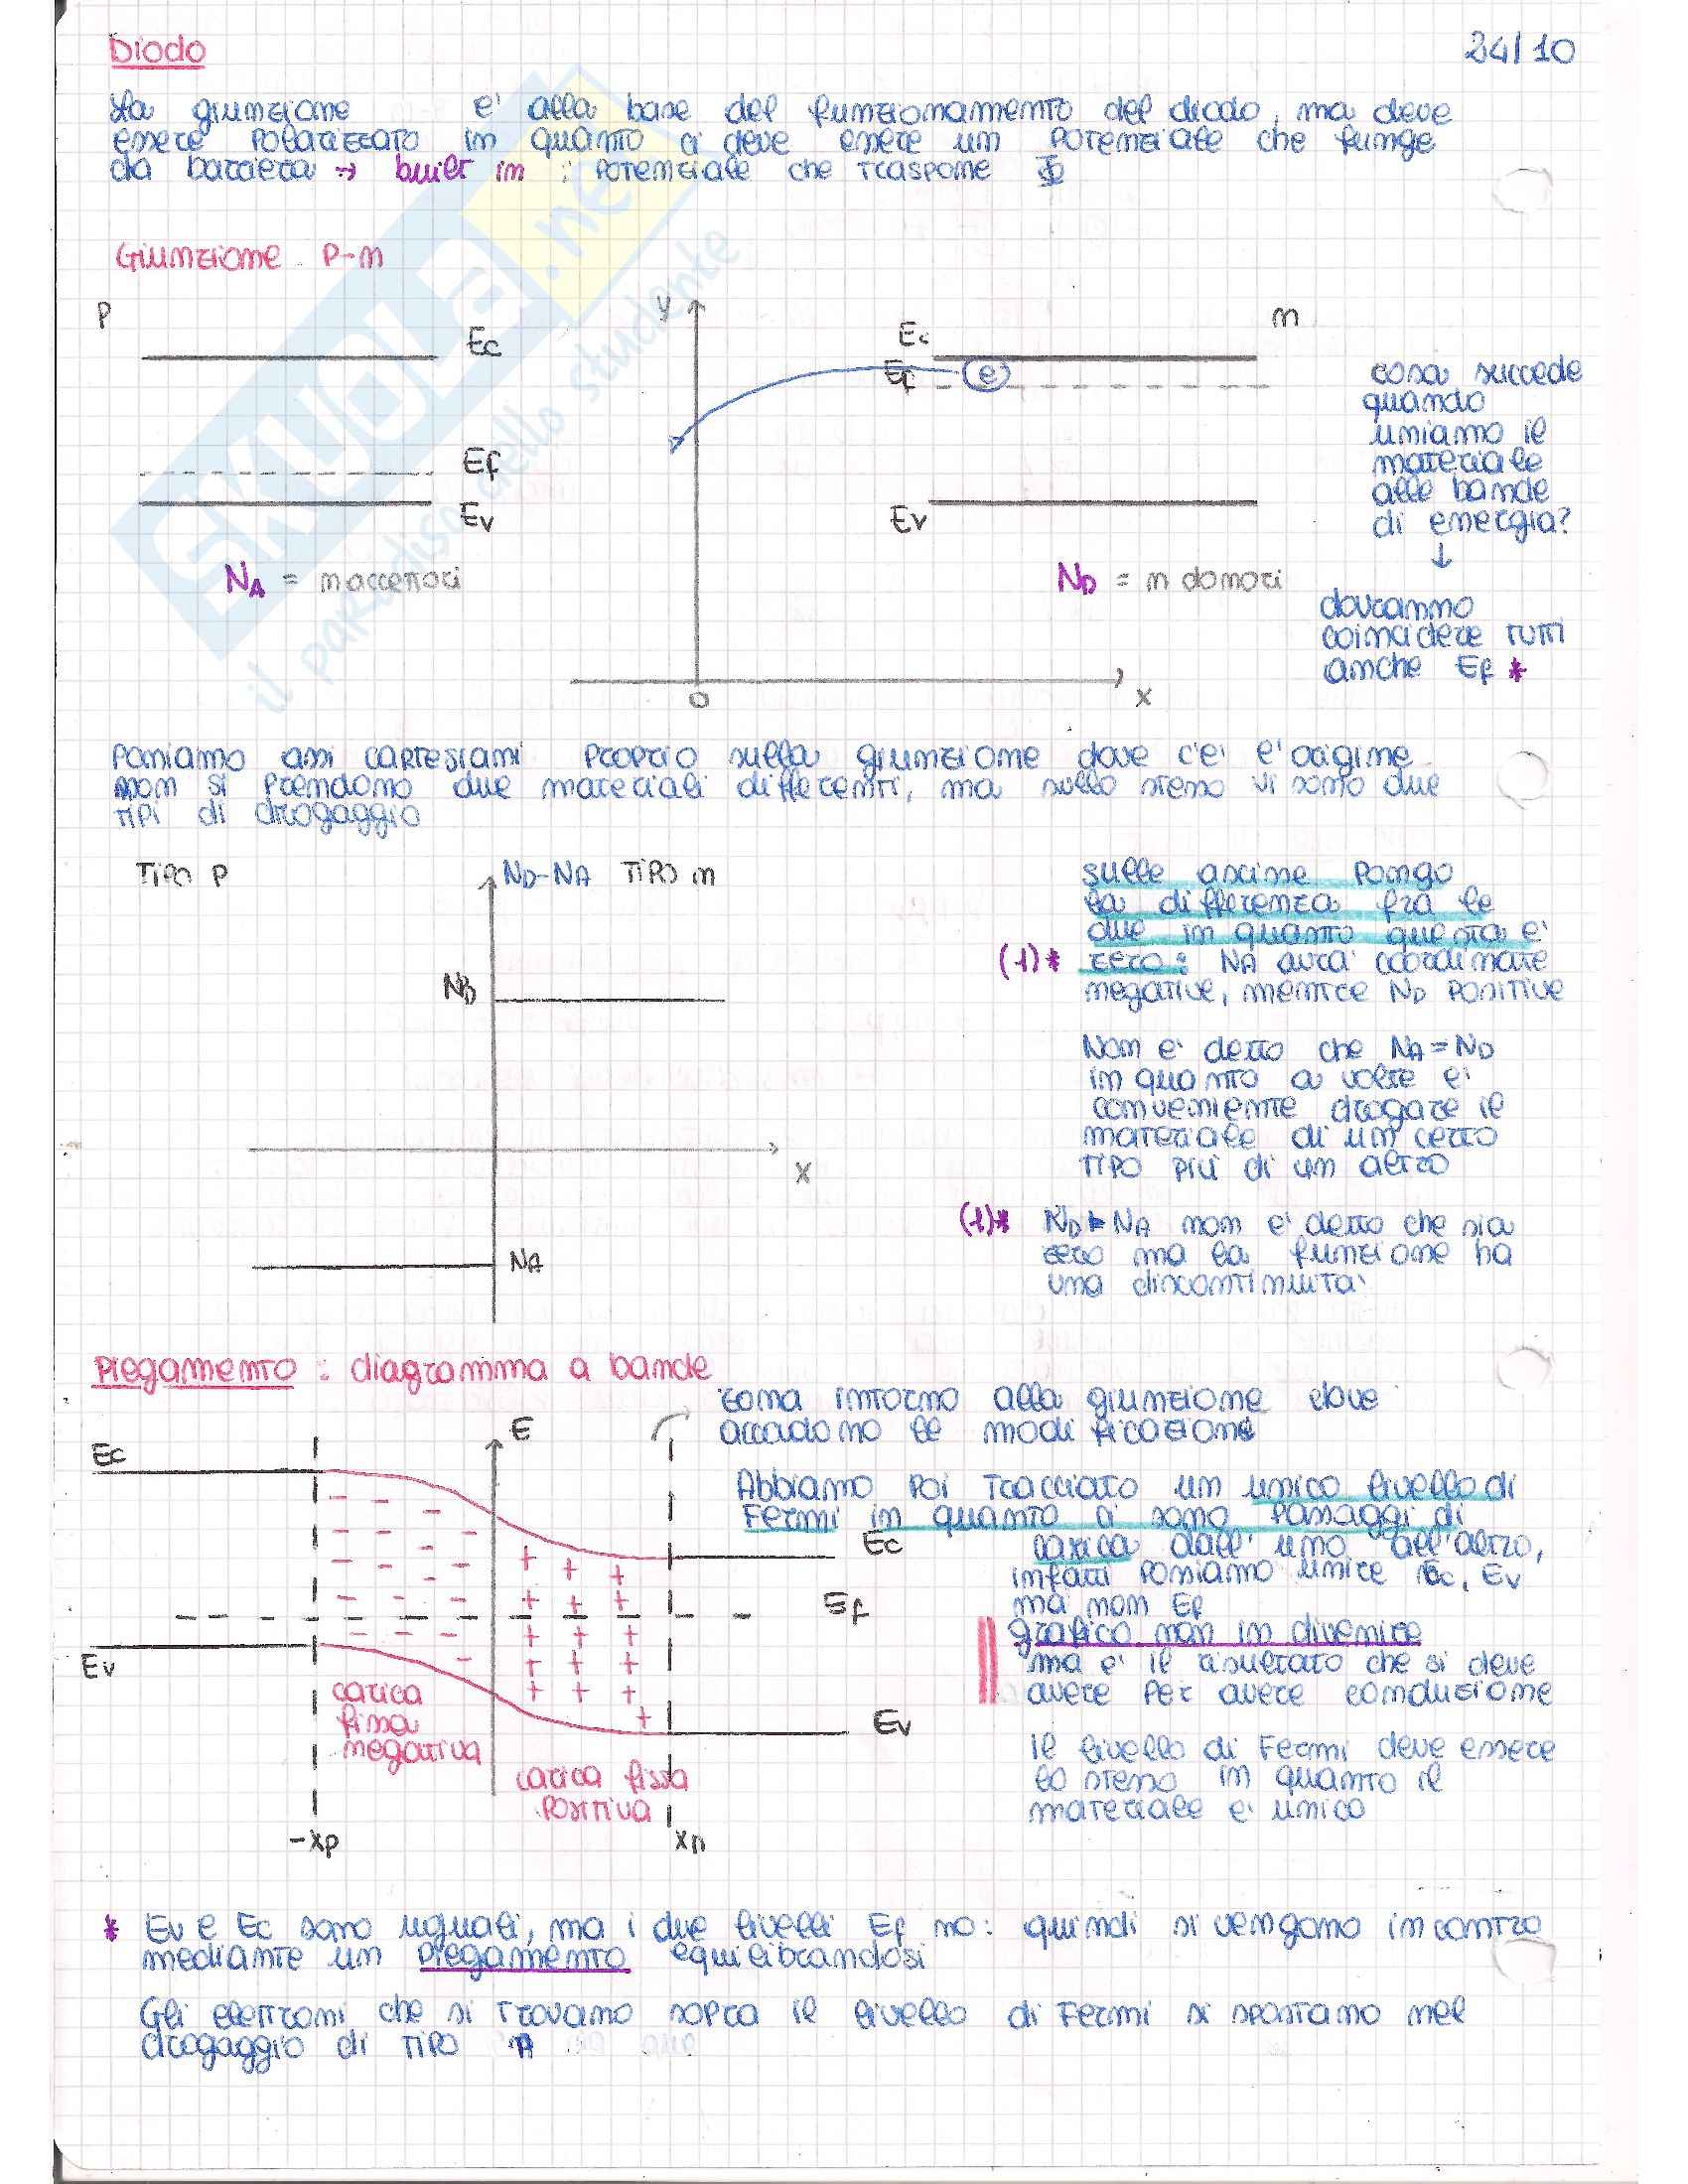 Diodo
24/10
La giunzione è alla base del funzionamento del diodo, ma deve
essere polarizzato in quanto ci deve essere un potenziale che funge
da barriera → built in : potenziale che traspone
Giunzione P-n
P
y
n
Ec
Ec
Ef
e
Ef
Ev
Ev
cosa succede
quando
uniamo il
materiale
alle bande
di energia?
↓
dovranno
coincidere tutti
anche Ef *
NA = n accettori
ND = n donori
0
x
Poniamo assi cartesiani proprio sulla giunzione dove c'è l'origine
non si prendono due materiali differenti, ma sullo stesso vi sono due
tipi di drogaggio
Tipo P
ND-NA Tipo n
ND
x
NA
sulle ascisse pongo
la differenza fra le
due in quanto questa è
(1)* zero: NA avrà coordinate
negative, mentre ND positive
Non è detto che NA = ND
in quanto a volte è
conveniente drogare il
materiale di un certo
tipo più di un altro
(1)* ND - NA non è detto che sia
zero ma la funzione ha
una discontinuità
Piegamento : diagramma a bande
zona intorno alla giunzione dove
accadono le modificazioni
E
Ec
Ec
Ef
Ev
Ev
carica
fissa
negativa
carica fissa
positiva
-xp
xn
Abbiamo poi tracciato un unico livello di
Fermi in quanto ci sono passaggi di
carica dall'uno all'altro,
infatti poniamo unite Ec, Ev
ma non Ef
grafico non in divenire
ma è il risultato che si deve
avere per avere conduzione
il livello di Fermi deve essere
lo stesso in quanto il
materiale è unico
* Ev e Ec sono uguali, ma i due livelli Ef no: quindi si vengono incontro
mediante un piegamento equilibrandosi
Gli elettroni che si trovano sopra il livello di Fermi si spostano nel
drogaggio di tipo P
SKUOLA.net
il paradiso dello studente